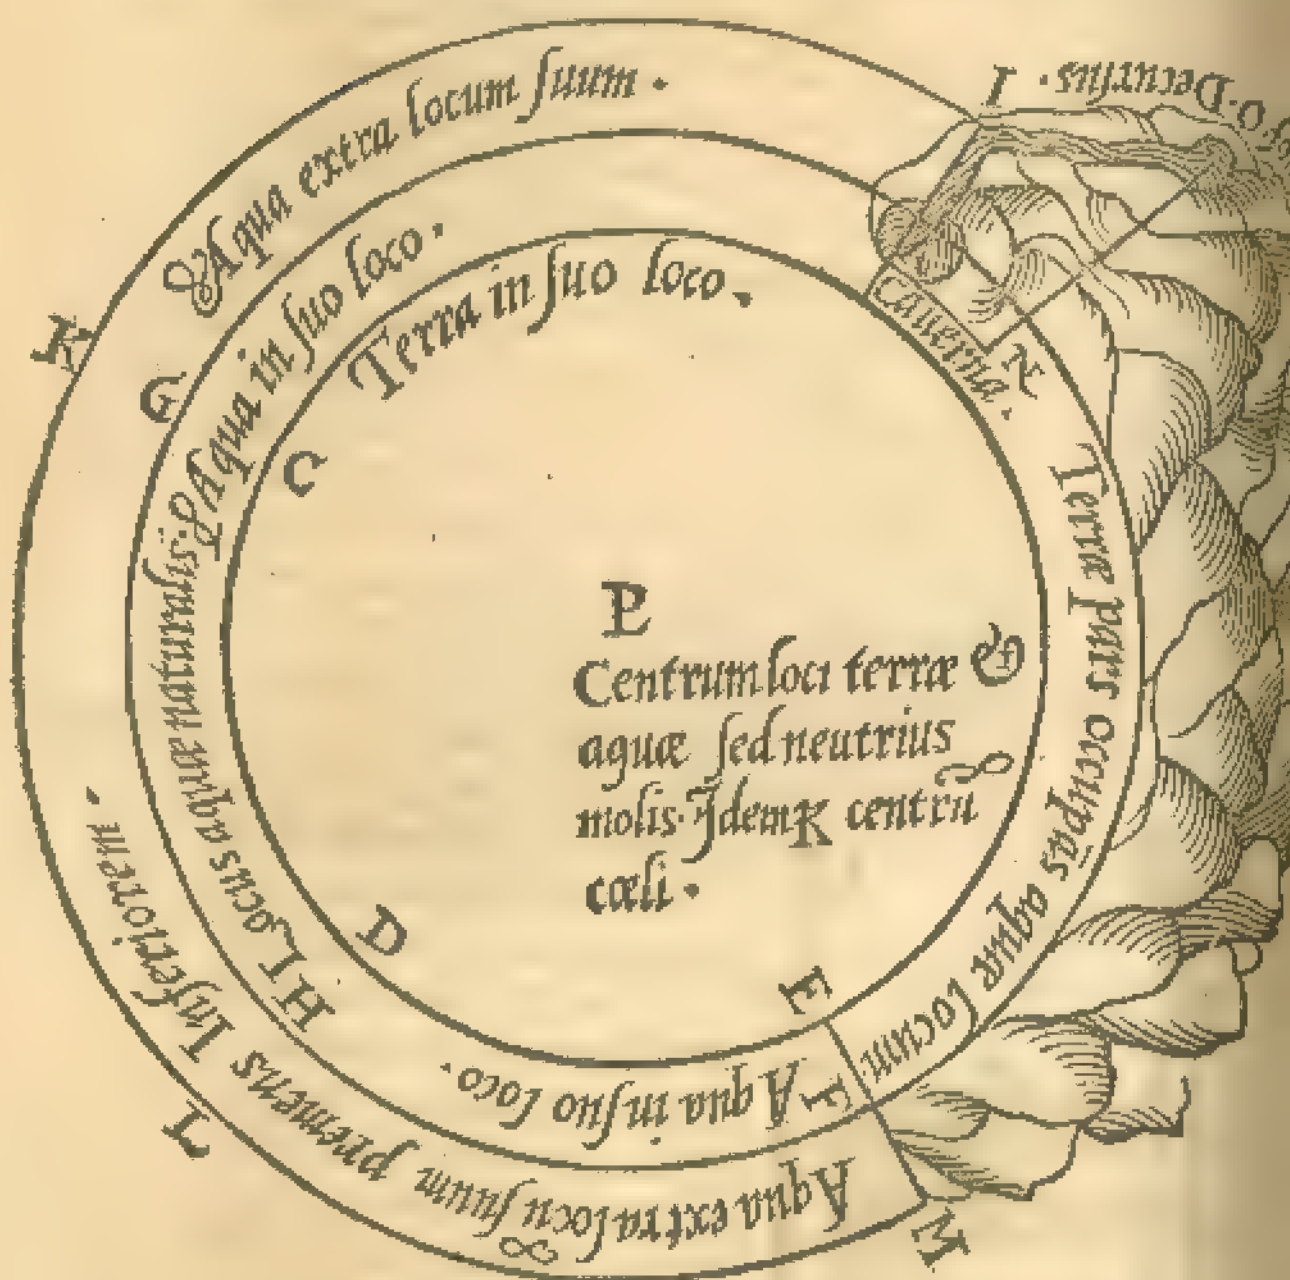 Aqua extra locum ſuum.
I
Decurſus.
O.
Aqua in ſuo loco.
Terra in ſuo loco.
G
C
Cauerna.
Terræ pars occupās aquæ locum
P
Centrum loci terræ &
aquæ ſed neutrius
molis. Idemq; centrū
cæli.
Locus aquæ naturalis.
H
D
E
F
Aqua in ſuo loco.
Aqua extra locū ſuum premens Inferiorem.
L
M